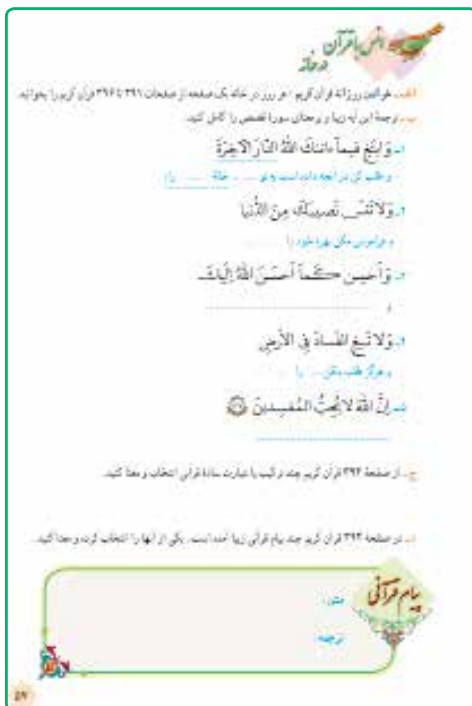 انس با قرآن
در خانه
الف ـ خواندن روزانهٔ قرآن کریم: هر روز در خانه یک صفحه از صفحات ۳۹۱ تا ۳۹۶ قرآن کریم را بخوانید.
ب ـ ترجمهٔ این آیه زیبا و پرمعنای سورهٔ قصص را کامل کنید.
۱ـ وَابتَغِ فیماۤ ءاتىٰكَ اللهُ الدّارَ الآخِرَةَ
و طلب کن در آنچه داده است به تو ........ خانهٔ ........ را؛
۲ـ وَلا تَنسَ نَصیبَكَ مِنَ الدُّنیا
و فراموش مکن بهره خود را ........
۳ـ وَأَحسِن كَماۤ أَحسَنَ اللهُ إِلَيكَ
و ........
۴ـ وَلا تَبغِ الفَسادَ فِي الأَرضِ
و هرگز طلب مکن ........ را ........
۵ـ إِنَّ اللهَ لا يُحِبُّ المُفسِدينَ ۷۷
........
ج ـ از صفحهٔ ۳۹۲ قرآن کریم چند ترکیب یا عبارت سادهٔ قرآنی انتخاب و معنا کنید.
د ـ در صفحهٔ ۳۹۴ قرآن کریم چند پیام قرآنی زیبا آمده است. یکی از آنها را انتخاب کرده و معنا کنید.
پیام قرآنی
متن:
ترجمه:
۵۷